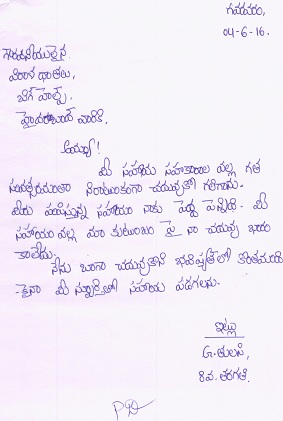 గవరవరం,
04-6-16.
గౌరవనీయులైన
విరాళ దాతలు,
బిగ్ హెల్ప్,
హైదరాబాద్ వారికి.
అయ్యా!
మీ సహాయ సహకారాల వల్ల గత
సంవత్సరమంతా నిరాటంకంగా చదువుకో గలిగాను.
మీరు పంపిస్తున్న సహాయం నాకు పెద్ద పెన్నిధి. మీ
సహాయం వల్ల మా కుటుంబం పై నా చదువు భారం
కాలేదు.
నేను బాగా చదువుకొని భవిష్యత్ లో కొంతమంది
-కైనా మీ స్ఫూర్తితో సహాయ పడగలను.
ఇట్లు
G. తులసి,
8వ. తరగతి.